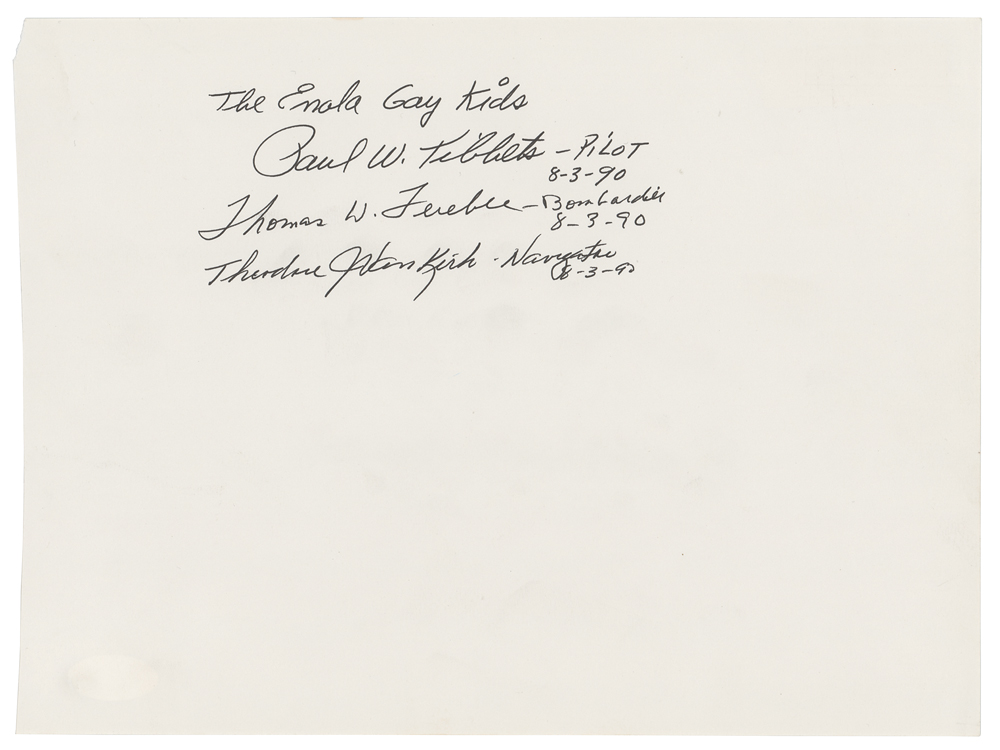 The Enola Gay Kids
Paul W. Tibbets - PILOT
8-3-90
Thomas W. Ferebee - Bombardier
8-3-90
Theodore J Van Kirk - Navigator
8-3-90